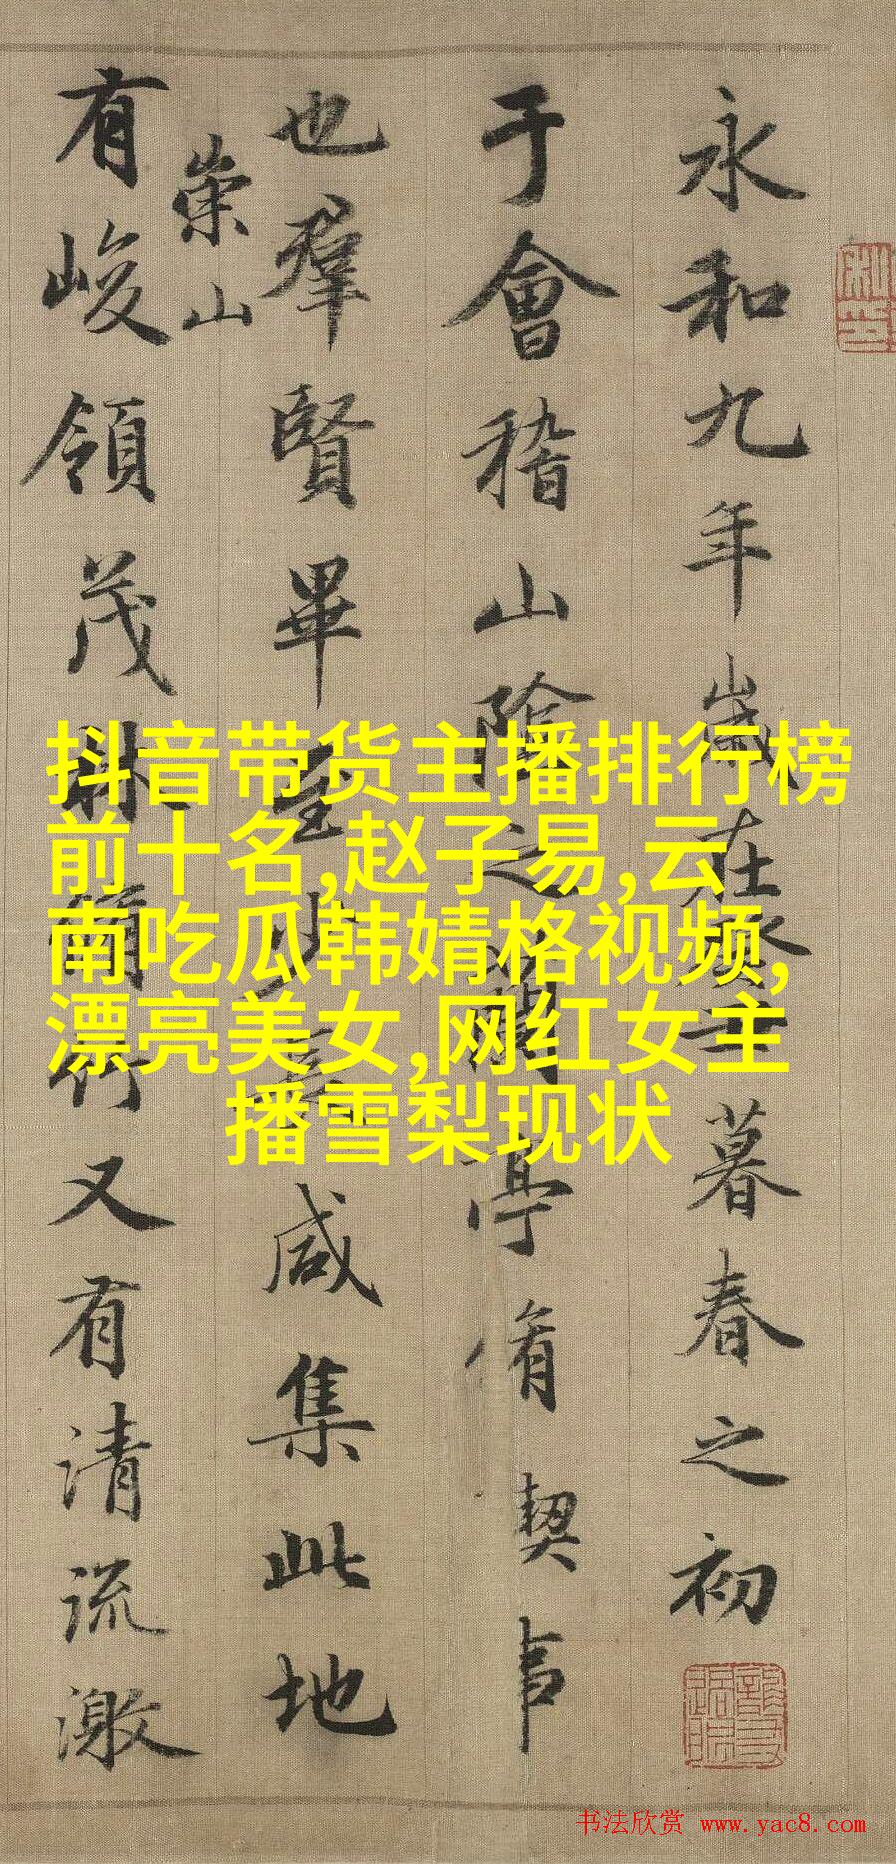 永和九年歲在癸丑暮春之初
于會稽山陰之蘭亭脩契事
也羣賢畢至少長咸集此地
崇山
有峻領茂林脩竹又有清流激
抖音带货主播排行榜
前十名,赵子易,云
南吃瓜韩婧格视频,
漂亮美女,网红女主
播雪梨现状
书法欣赏 www.yac8.com